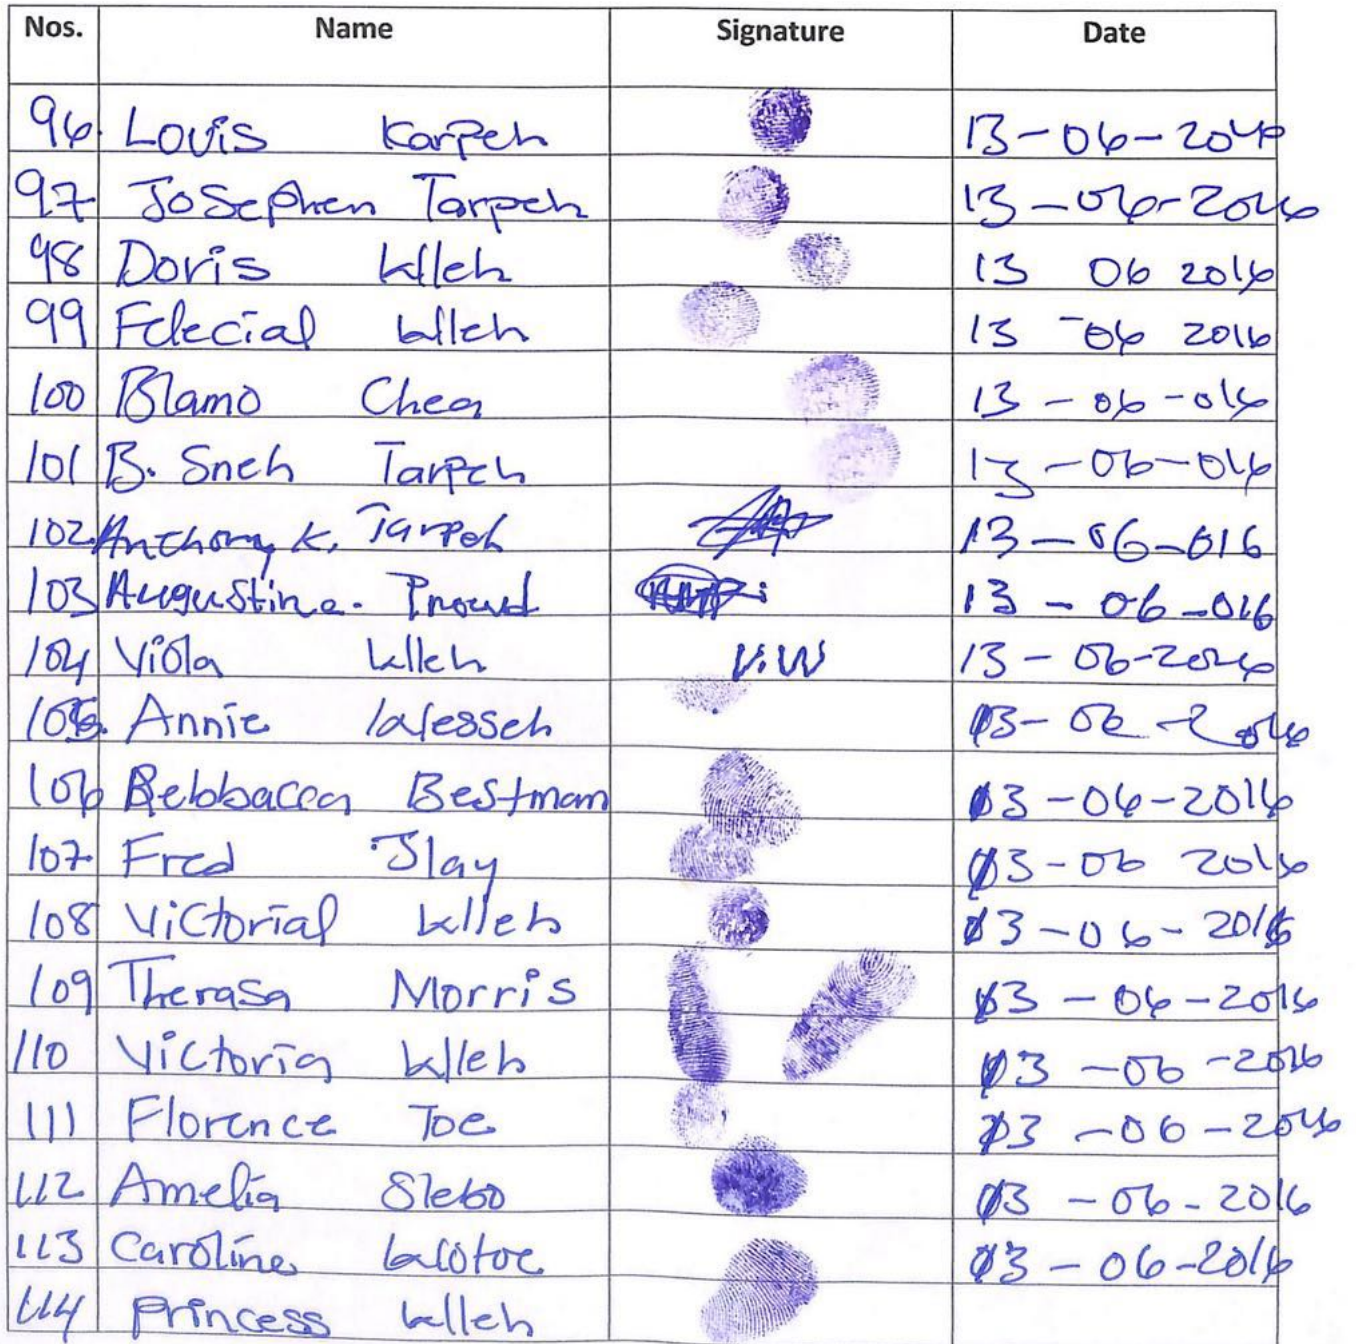 Nos. Name Signature Date
96. Louis Karpeh 13-06-2016
97 Josephen Tarpeh 13-06-2016
98 Doris Wlleh 13 06 2016
99 Felecial Wlleh 13 -06 2016
100 Blamo Chea 13-06-016
101 B. Sneh Tarpeh 13-06-016
102. Anthony K. Tarpeh 13-06-016
103 Augustine. Proud 13-06-016
104 Viola Wlleh V.W 13-06-2016
105. Annie Wesseh 13-06-2016
106 Rebbacca Bestman 13-06-2016
107. Fred Jlay 13-06 2016
108 Victorial Wlleh 13-06-2016
109 Therasa Morris 13-06-2016
110 Victoria Wlleh 13-06-2016
111 Florence Toe 13-06-2016
112 Amelia Slebo 13-06-2016
113 Caroline Wotoe 13-06-2016
114 Princess Wlleh